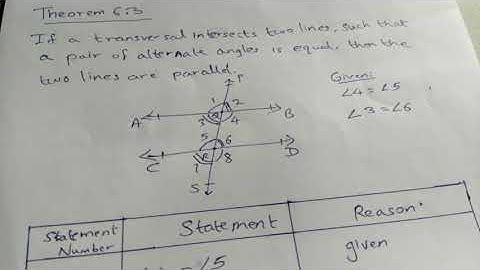 Theorem 6.3
If a transversal intersects two lines, such that
a pair of alternate angles is equal, then the
two lines are parallel.
Given:
∠4 = ∠5
∠3 = ∠6
P
1 2
A B
3 4
5 6
C D
7 8
S
Statement Number
Statement
Reason
given